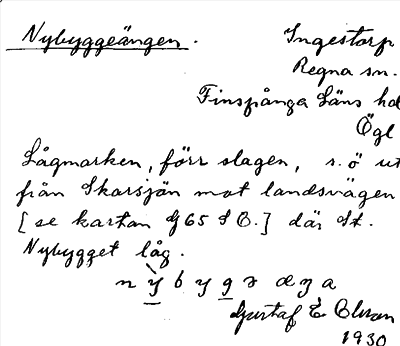 Nybyggeängen.
Ingestorp
Regna sn.
Finspånga Läns hd
Ögl
Lågmarken, förr slagen, s.ö ut
från Skarsjön mot landsvägen
[se kartan G 65 S Ö.] där St.
Nybygget låg.
n y b y g ə æŋ a
Gustaf E Olsson
1930